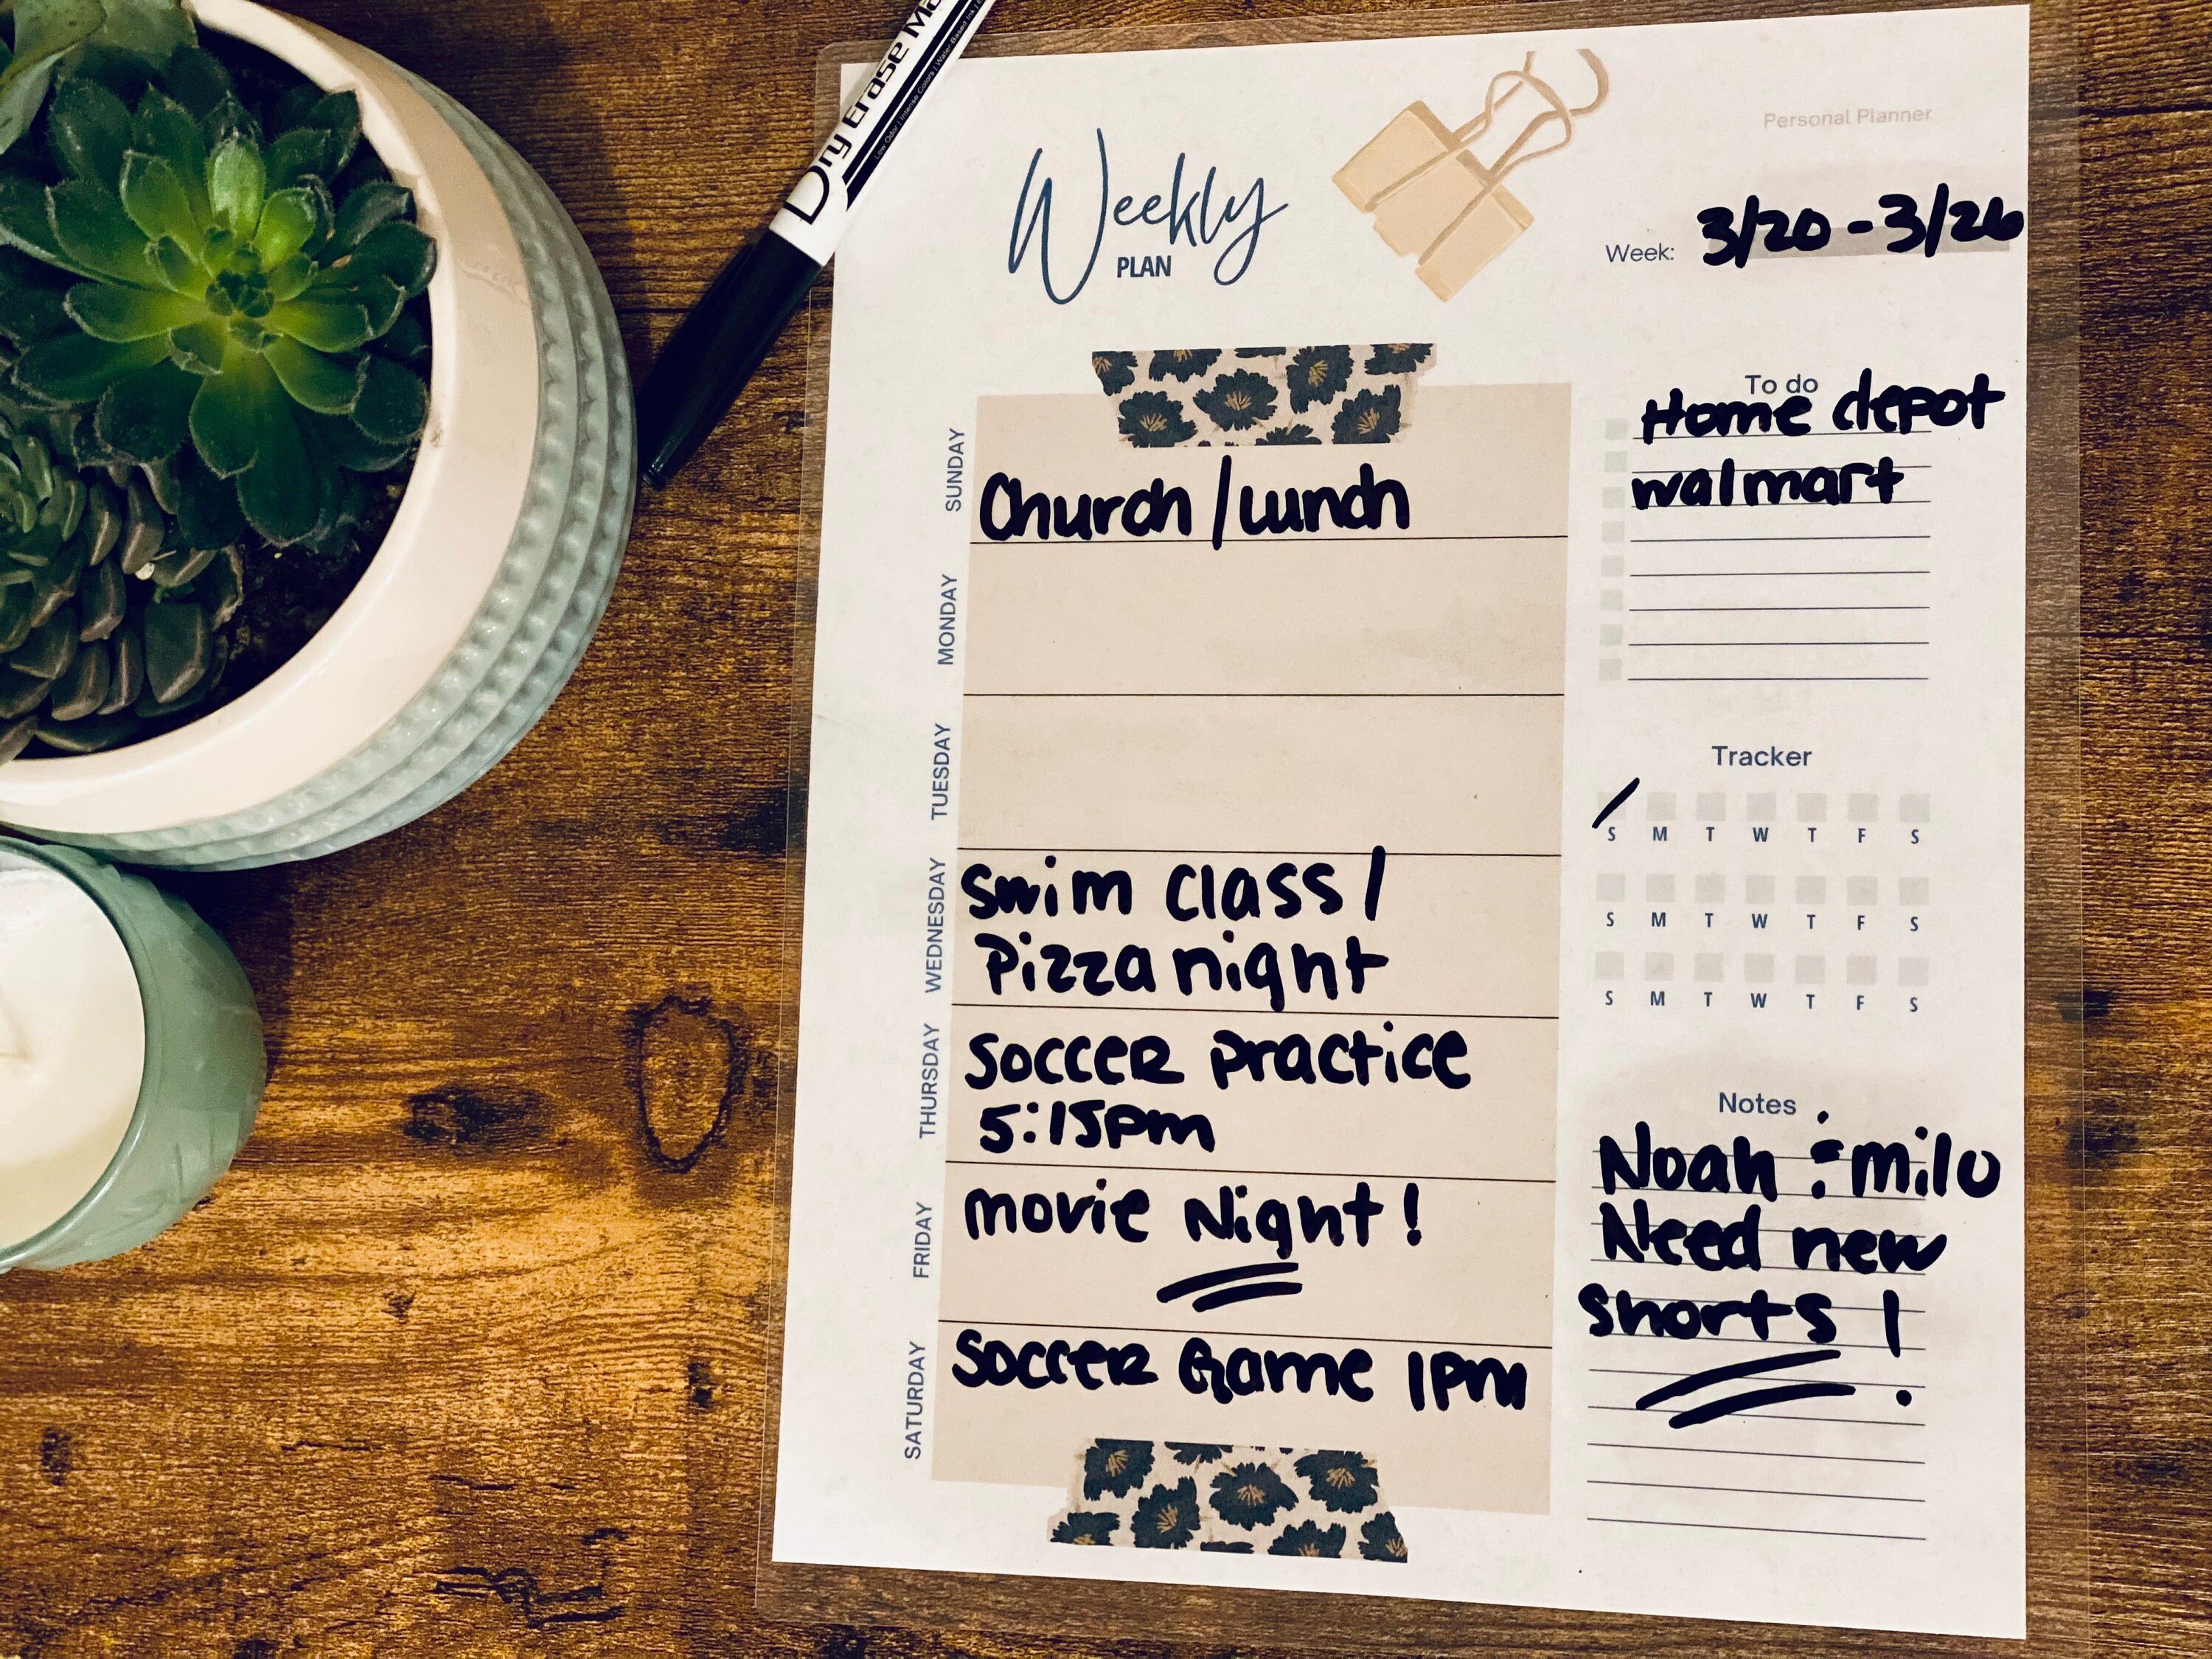 Dry Erase Ma
Low Odor | Intense Colors | Water Based Ink |
Personal Planner
Weekly
PLAN
Week: 3/20 - 3/26
SUNDAY
Church / Lunch
MONDAY
TUESDAY
WEDNESDAY
Swim class /
Pizza night
THURSDAY
SOCCER Practice
5:15pm
FRIDAY
movie Night!
SATURDAY
SOCCER Game 1PM
To do
Home depot
walmart
Tracker
S M T W T F S
S M T W T F S
S M T W T F S
Notes
Noah & milo
Need new
shorts!